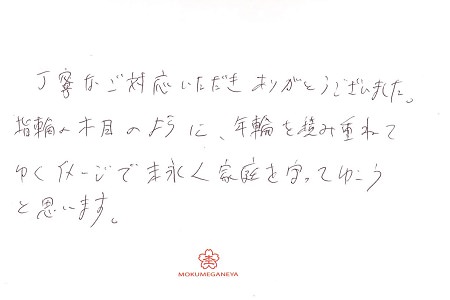 丁寧なご対応いただきありがとうございました。
指輪の木目のように、年輪を積み重ねて
ゆくイメージで末永く家庭を守ってゆこう
と思います。
MOKUMEGANEYA